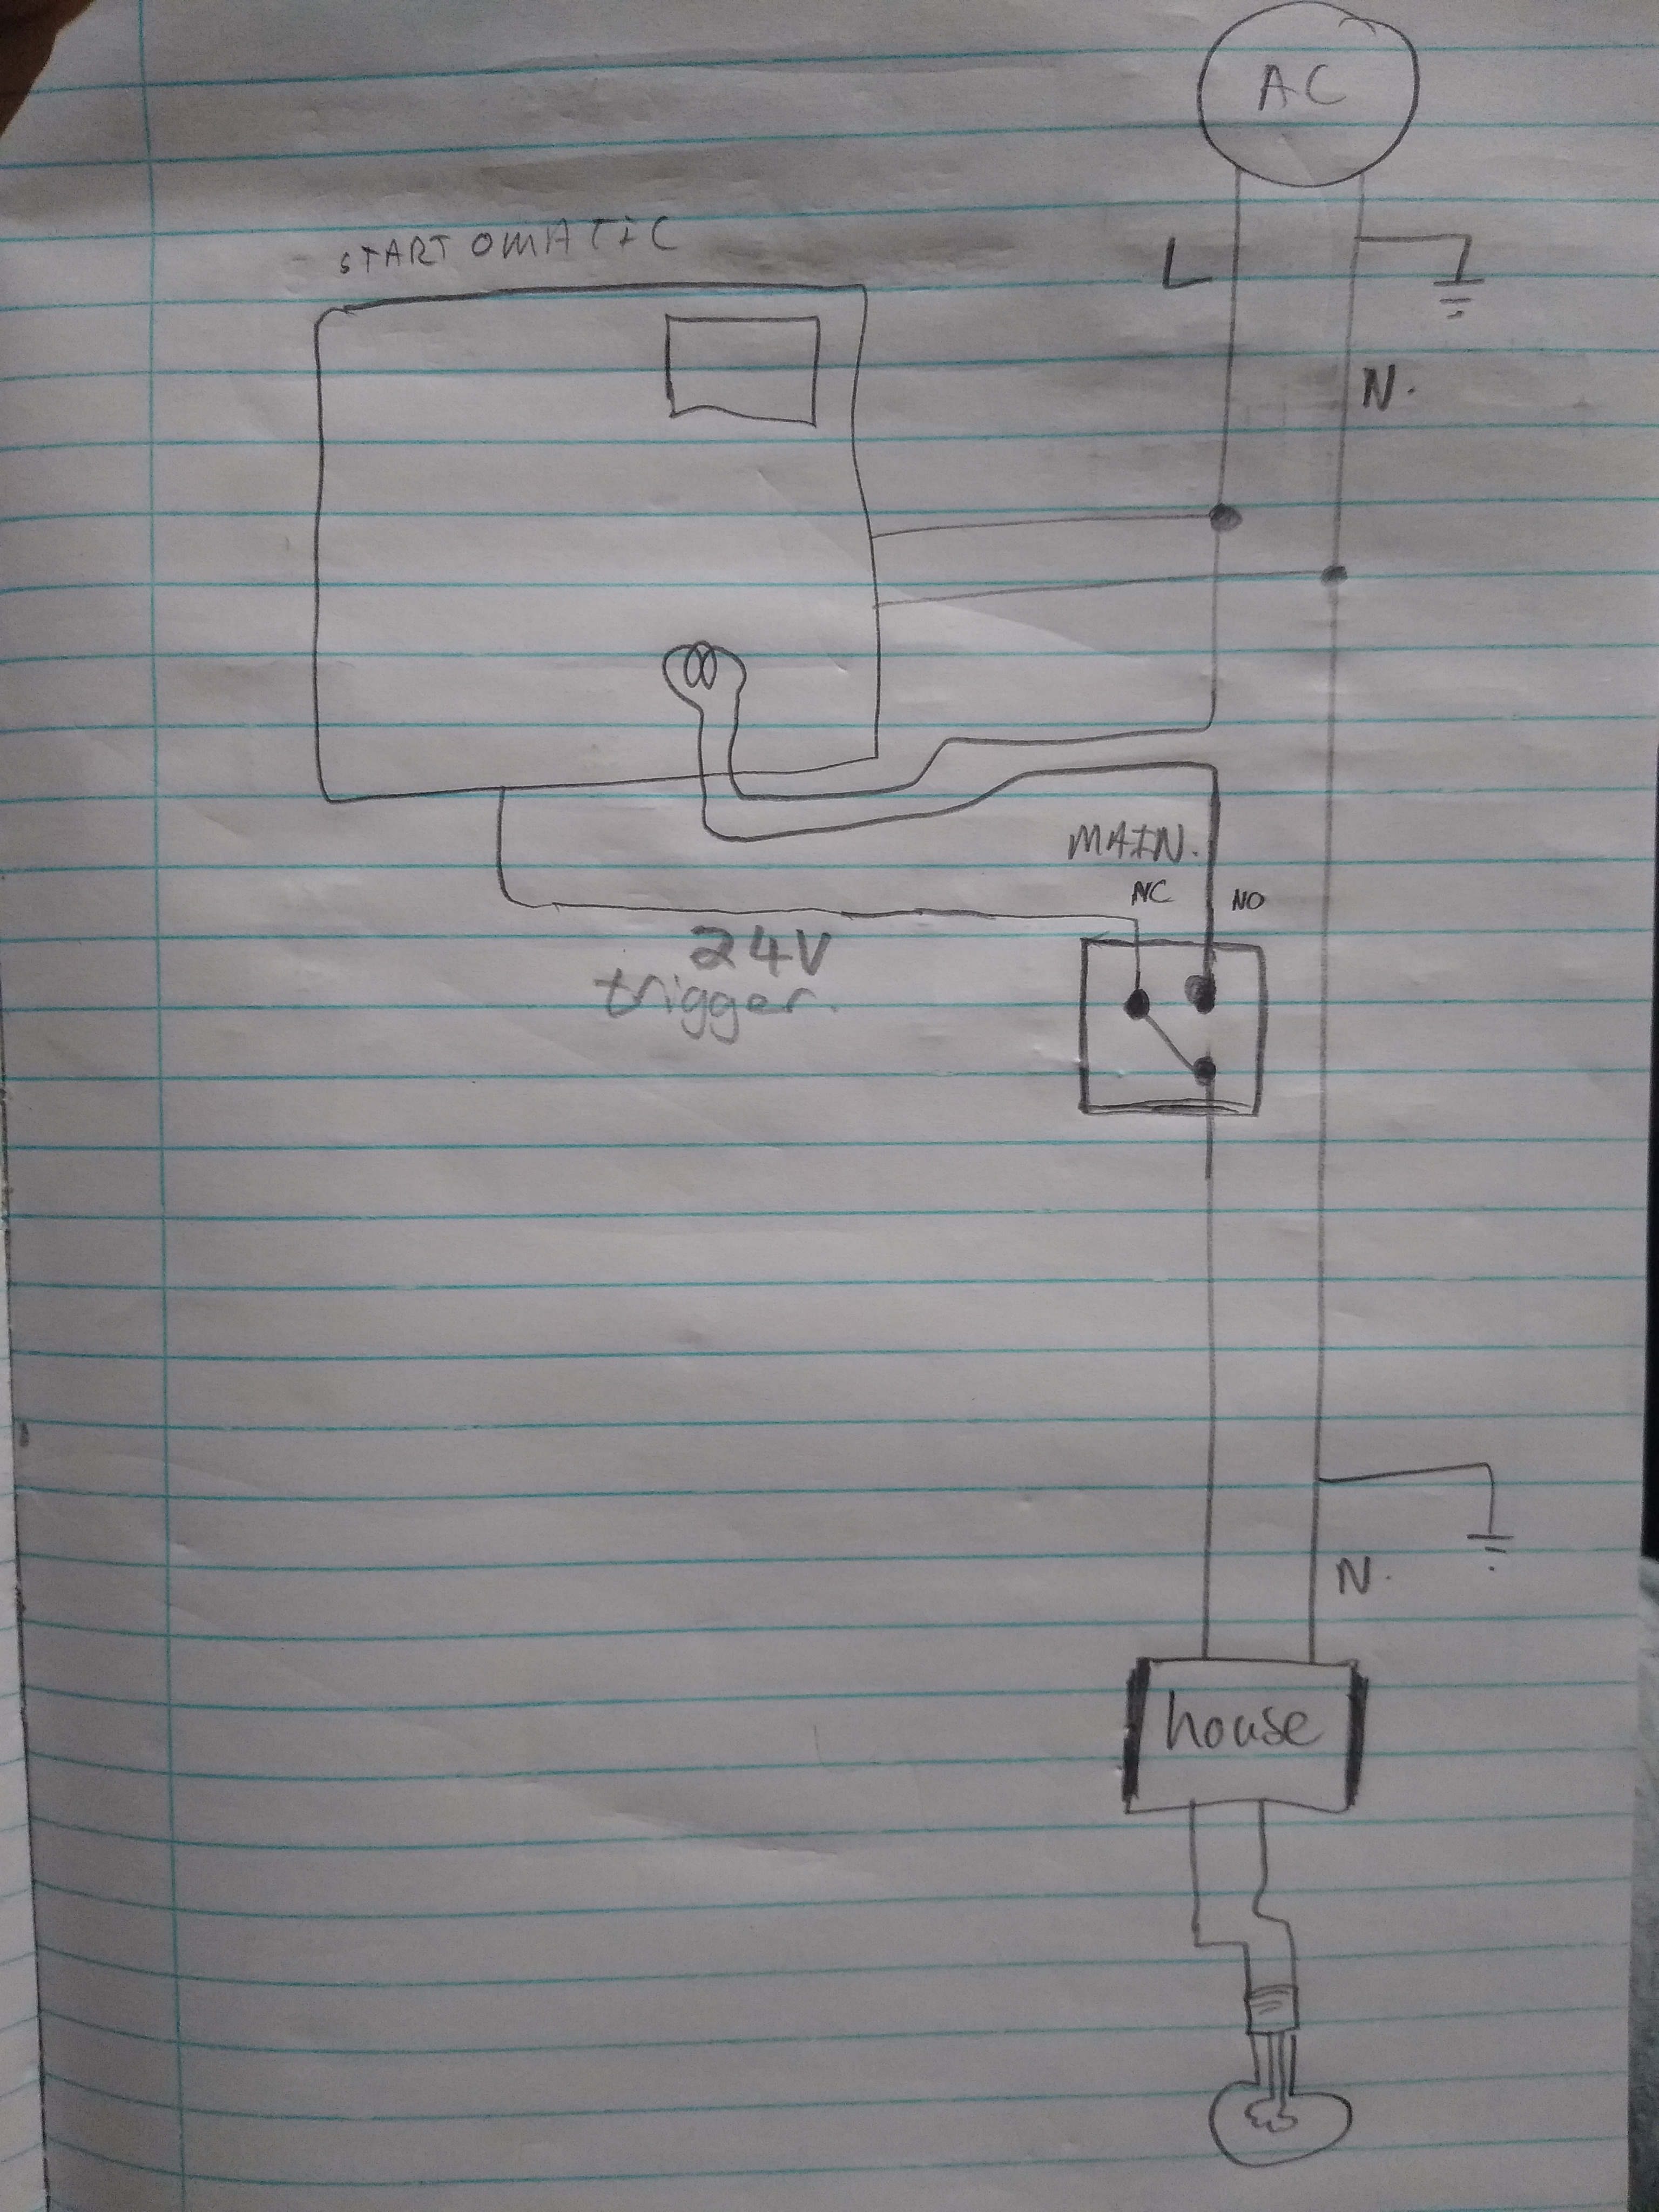 AC
STARTOMATIC
L
N.
MAIN.
NC
NO
24V
trigger.
N.
house